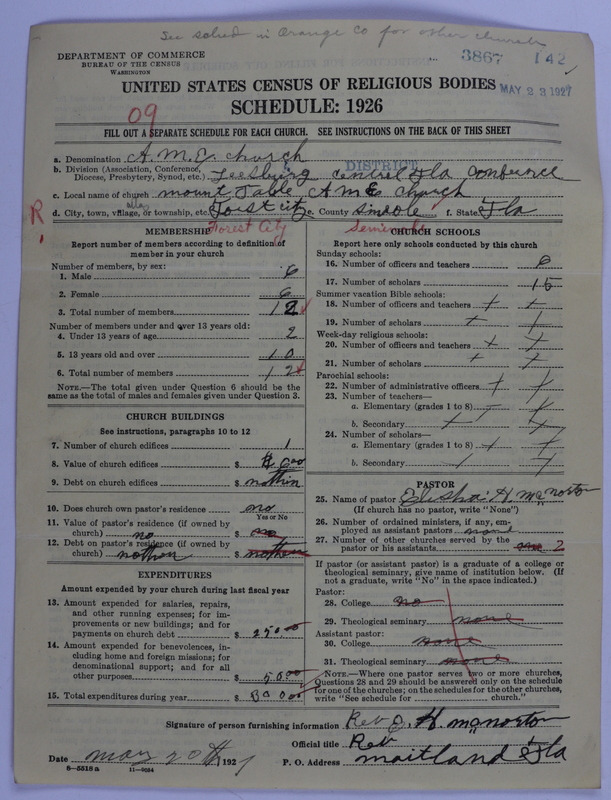 See sched in Orange Co for other church
DEPARTMENT OF COMMERCE
BUREAU OF THE CENSUS
WASHINGTON
3867 142
UNITED STATES CENSUS OF RELIGIOUS BODIES
MAY 23 1927
SCHEDULE: 1926
09
FILL OUT A SEPARATE SCHEDULE FOR EACH CHURCH. SEE INSTRUCTIONS ON THE BACK OF THIS SHEET
a. Denomination A.M.E. Church
b. Division (Association, Conference, Diocese, Presbytery, Synod, etc.) Leesburg DISTRICT central Fla Conference
c. Local name of church mount Table A M E church
d. City, town, village, or township, etc. Forst city e. County Simnole f. State Fla
R
Forest City Seminole
MEMBERSHIP
Report number of members according to definition of
member in your church
Number of members, by sex:
1. Male 6
2. Female 6
3. Total number of members 12
Number of members under and over 13 years old:
4. Under 13 years of age 2
5. 13 years old and over 10
6. Total number of members 12
NOTE.—The total given under Question 6 should be the
same as the total of males and females given under Question 3.
CHURCH BUILDINGS
See instructions, paragraphs 10 to 12
7. Number of church edifices 1
8. Value of church edifices $
9. Debt on church edifices $ nothin
10. Does church own pastor's residence no
Yes or No
11. Value of pastor's residence (if owned by
church) no $ no
12. Debt on pastor's residence (if owned by
church) nothen $ nothen
EXPENDITURES
Amount expended by your church during last fiscal year
13. Amount expended for salaries, repairs,
and other running expenses; for im-
provements or new buildings; and for
payments on church debt $ 250.00
14. Amount expended for benevolences, in-
cluding home and foreign missions; for
denominational support; and for all
other purposes $ 50.00
15. Total expenditures during year $ 300.00
CHURCH SCHOOLS
Report here only schools conducted by this church
Sunday schools:
16. Number of officers and teachers 6
17. Number of scholars 15
Summer vacation Bible schools:
18. Number of officers and teachers
19. Number of scholars
Week-day religious schools:
20. Number of officers and teachers
21. Number of scholars
Parochial schools:
22. Number of administrative officers
23. Number of teachers—
a. Elementary (grades 1 to 8)
b. Secondary
24. Number of scholars—
a. Elementary (grades 1 to 8)
b. Secondary
PASTOR
25. Name of pastor Elisha H McNorton
(If church has no pastor, write "None")
26. Number of ordained ministers, if any, em-
ployed as assistant pastors none
27. Number of other churches served by the
pastor or his assistants one 2
If pastor (or assistant pastor) is a graduate of a college or
theological seminary, give name of institution below. (If
not a graduate, write "No" in the space indicated.)
Pastor:
28. College no
29. Theological seminary none
Assistant pastor:
30. College none
31. Theological seminary none
NOTE.—Where one pastor serves two or more churches,
Questions 28 and 29 should be answered only on the schedule
for one of the churches; on the schedules for the other churches,
write "See schedule for church."
Signature of person furnishing information Rev E. H. McNorton
Official title Rev
Date May 20th, 1927 P. O. Address maitland Fla
8-5518a 11-9054